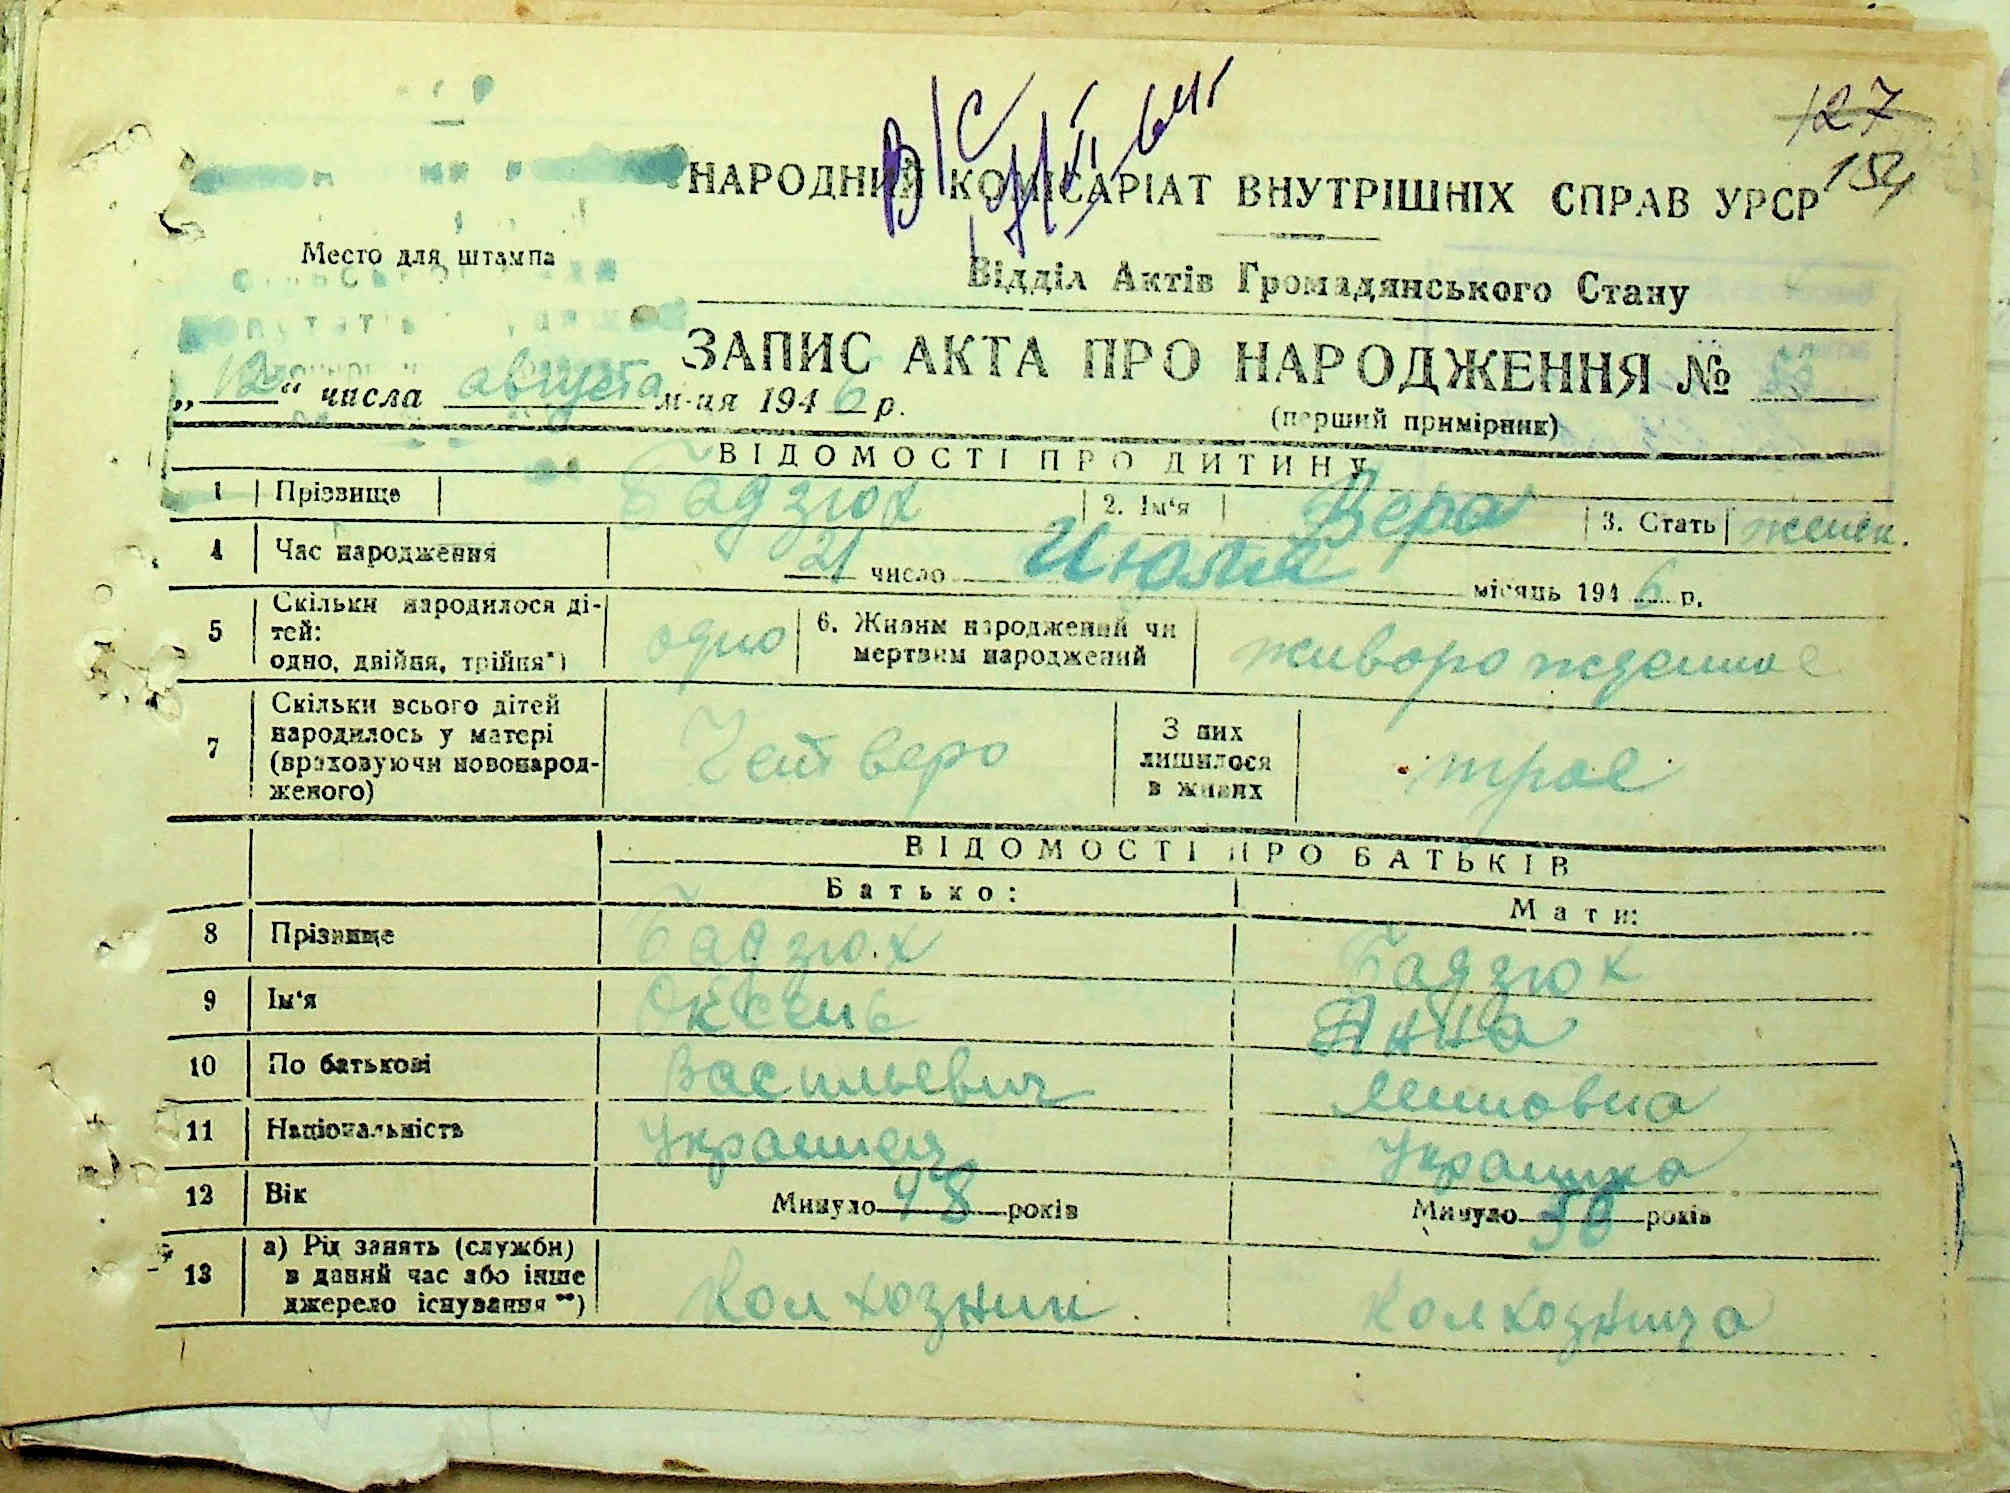 В/С
127
154
НАРОДНИЙ КОМІСАРІАТ ВНУТРІШНІХ СПРАВ УРСР
Место для штампа
Відділ Актів Громадянського Стану
ЗАПИС АКТА ПРО НАРОДЖЕННЯ №
„12“ числа августа м-ця 1946 р.
(перший примірник)
ВІДОМОСТІ ПРО ДИТИНУ
1 Прізвище Бадзюх 2. Ім'я Вера 3. Стать женск.
4 Час народження 21 число Июля місяць 1946 р.
5 Скільки народилося ді-
тей:
одно, двійня, трійня*) одно 6. Живим народжений чи
мертвим народжений живорожденное
7 Скільки всього дітей
народилось у матері
(враховуючи новонарод-
женого) Четверо З них
лишилося
в живих трое
ВІДОМОСТІ ПРО БАТЬКІВ
Батько: Мати:
8 Прізвище Бадзюх Бадзюх
9 Ім'я Оксень Анна
10 По батькові Васильевич
11 Національність Украинец Украинка
12 Вік Минуло 48 років Минуло років
13 а) Рід занять (служби)
в даний час або інше
джерело існування**) Колхозник Колхозница